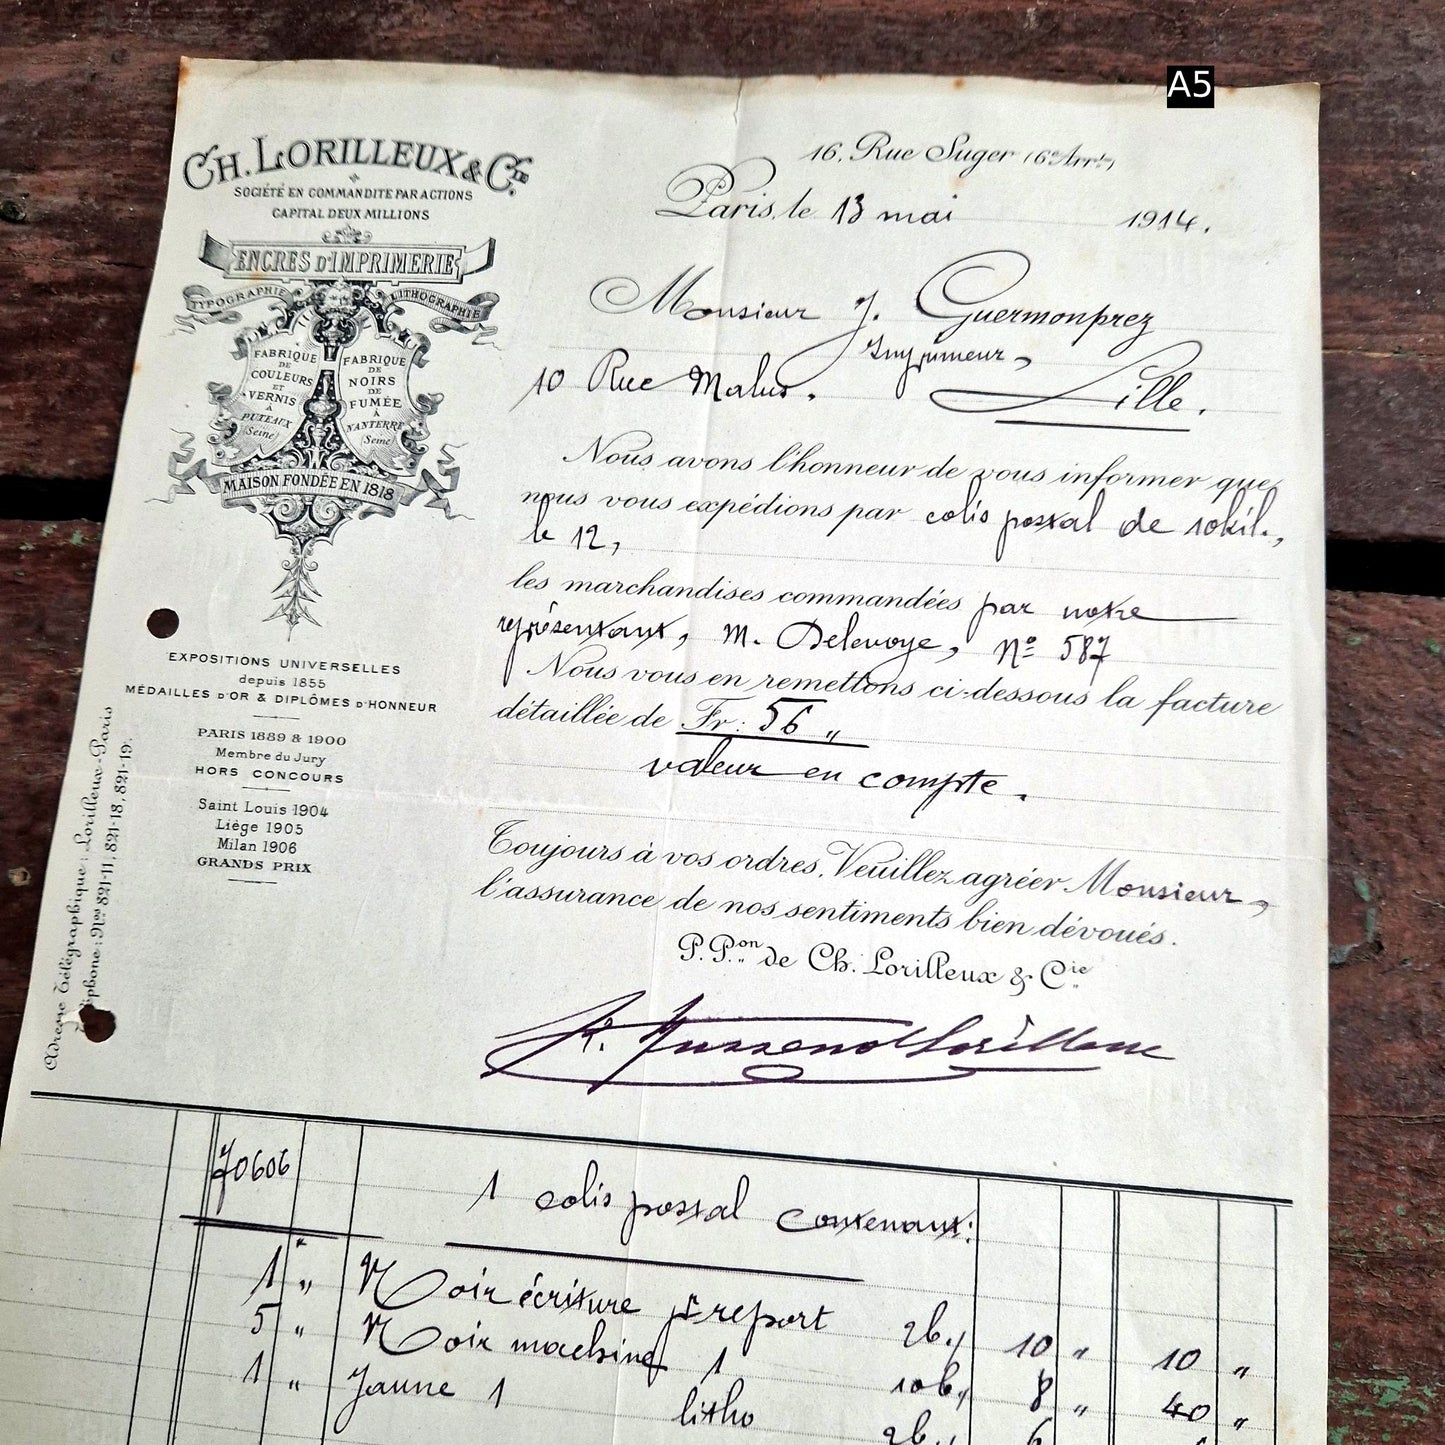 A5
CH. LORILLEUX & Cie
SOCIÉTÉ EN COMMANDITE PAR ACTIONS
CAPITAL DEUX MILLIONS
ENCRES D'IMPRIMERIE
TYPOGRAPHIE
LITHOGRAPHIE
FABRIQUE
DE
COULEURS
ET
VERNIS
À
PUTEAUX
(Seine)
FABRIQUE
DE
NOIRS
DE
FUMÉE
À
NANTERRE
(Seine)
MAISON FONDÉE EN 1818
EXPOSITIONS UNIVERSELLES
depuis 1855
MÉDAILLES D'OR & DIPLÔMES D'HONNEUR
PARIS 1889 & 1900
Membre du Jury
HORS CONCOURS
Saint Louis 1904
Liège 1905
Milan 1906
GRANDS PRIX
Adresse Télégraphique: Lorilleux-Paris
Téléphone: Nos 821-11, 821-18, 821-19.
16, Rue Suger (6e Arrt)
Paris, le 13 mai 1914.
Monsieur J. Guermonprez
Imprimeur,
10 Rue Malus. Lille.
Nous avons l'honneur de vous informer que
nous vous expédions par colis postal de 10kil.,
le 12,
les marchandises commandées par notre
représentant, M. Delevoye, No 587
Nous vous en remettons ci-dessous la facture
détaillée de Fr: 56 "
valeur en compte.
Toujours à vos ordres, Veuillez agréer Monsieur,
l'assurance de nos sentiments bien dévoués.
P. Pon de Ch. Lorilleux & Cie
Lorilleux
70606
1 colis postal contenant:
1 " Noir écriture pr report 2b., 10 " 10 "
5 " Noir machine 1 10b., 8 " 40 "
1 " Jaune 1 litho 2b., 6